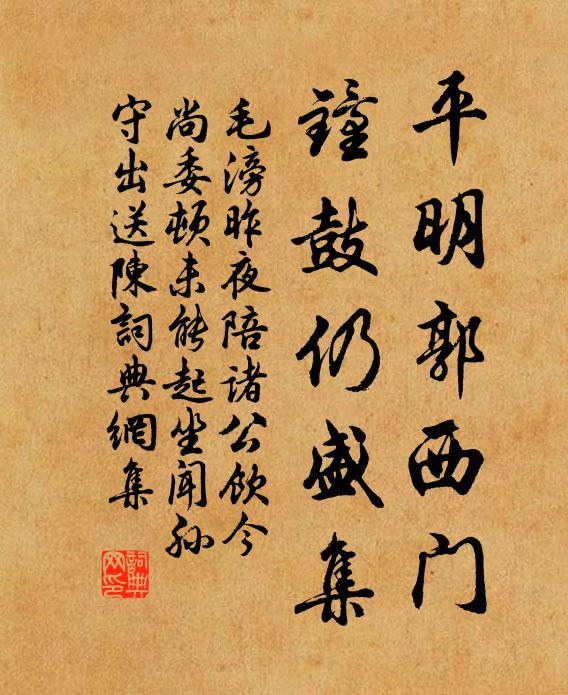 平明郭西门
鐘鼓仍盛集
毛滂昨夜陪诸公飲今
尚委頓未能起坐聞孙
守出送陳詞典網集
詞典
网印